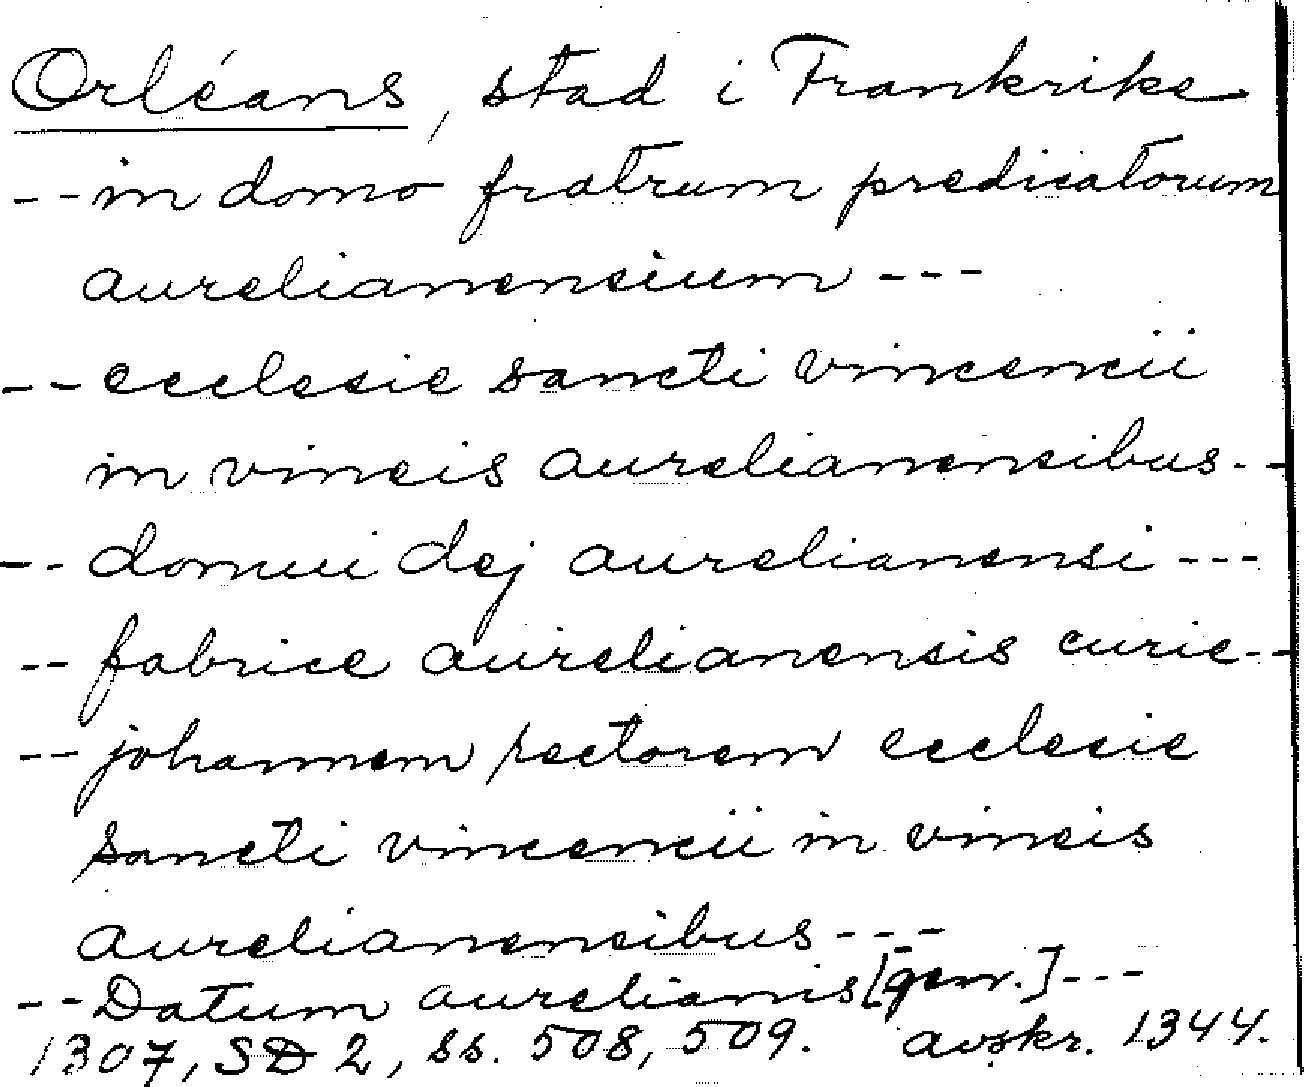 Orléans, stad i Frankrike
-- in domo fratrum predicatorum
aurelianensium ---
-- ecclesie sancti vincencii
in vineis aurelianensibus --
-- domui dej aurelianensi ---
-- fabrice aurelianensis curie --
-- johannem rectorem ecclesie
sancti vincencii in vineis
aurelianensibus ---
-- Datum aurelianis [gen.] ---
1307, SD 2, ss. 508, 509. avskr. 1344.